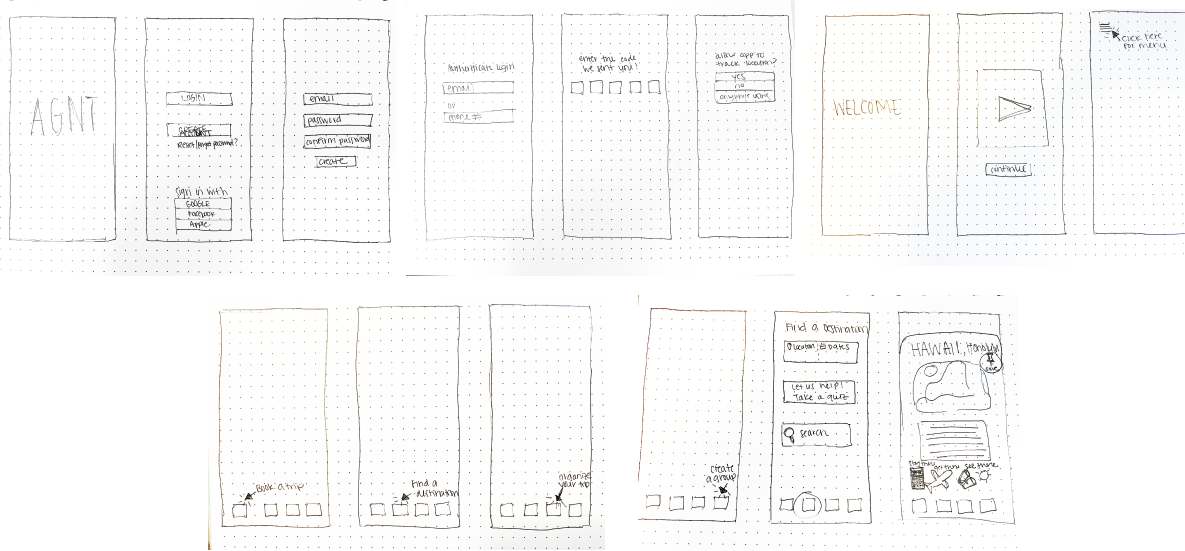 AGNT
LOGIN
Reset/forget password?
sign in with
GOOGLE
Facebook
Apple
email
password
confirm password
create
Authenticate login
email
or
phone #
enter the code
we sent you!
allow app to
track location?
yes
no
only while using
WELCOME
continue
click here
for menu
Book a trip
Find a
destination
organize
your trip
create
a group
Find a Destination
location
Dates
Let us help!
Take a quiz
search
HAWAII, Honolulu
save